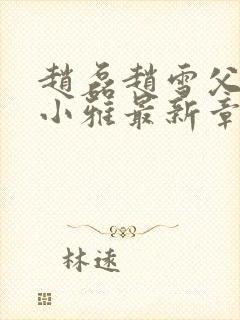 趙磊趙雪父
小雅最新章
林遠